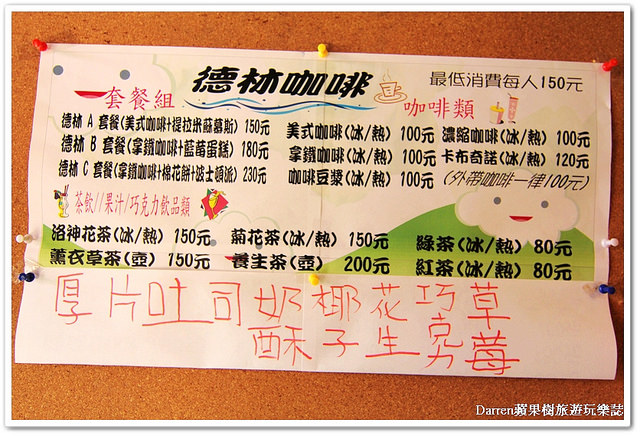 德林咖啡
最低消費每人150元
套餐組
咖啡類
德林 A 套餐(美式咖啡+提拉米蘇慕斯) 150元
德林 B 套餐(拿鐵咖啡+藍莓蛋糕) 180元
德林 C 套餐(拿鐵咖啡+棉花餅+波士頓派) 230元
美式咖啡(冰/熱) 100元 濃縮咖啡(冰/熱) 100元
拿鐵咖啡(冰/熱) 100元 卡布奇諾(冰/熱) 120元
咖啡豆漿(冰/熱) 100元 (外帶咖啡一律100元)
茶飲//果汁/巧克力飲品類
洛神花茶(冰/熱) 150元 菊花茶(冰/熱) 150元 綠茶(冰/熱) 80元
薰衣草茶(壺) 150元 養生茶(壺) 200元 紅茶(冰/熱) 80元
厚片吐司 奶酥 椰子 花生 巧克力 草莓
Darren蘋果樹旅遊玩樂誌